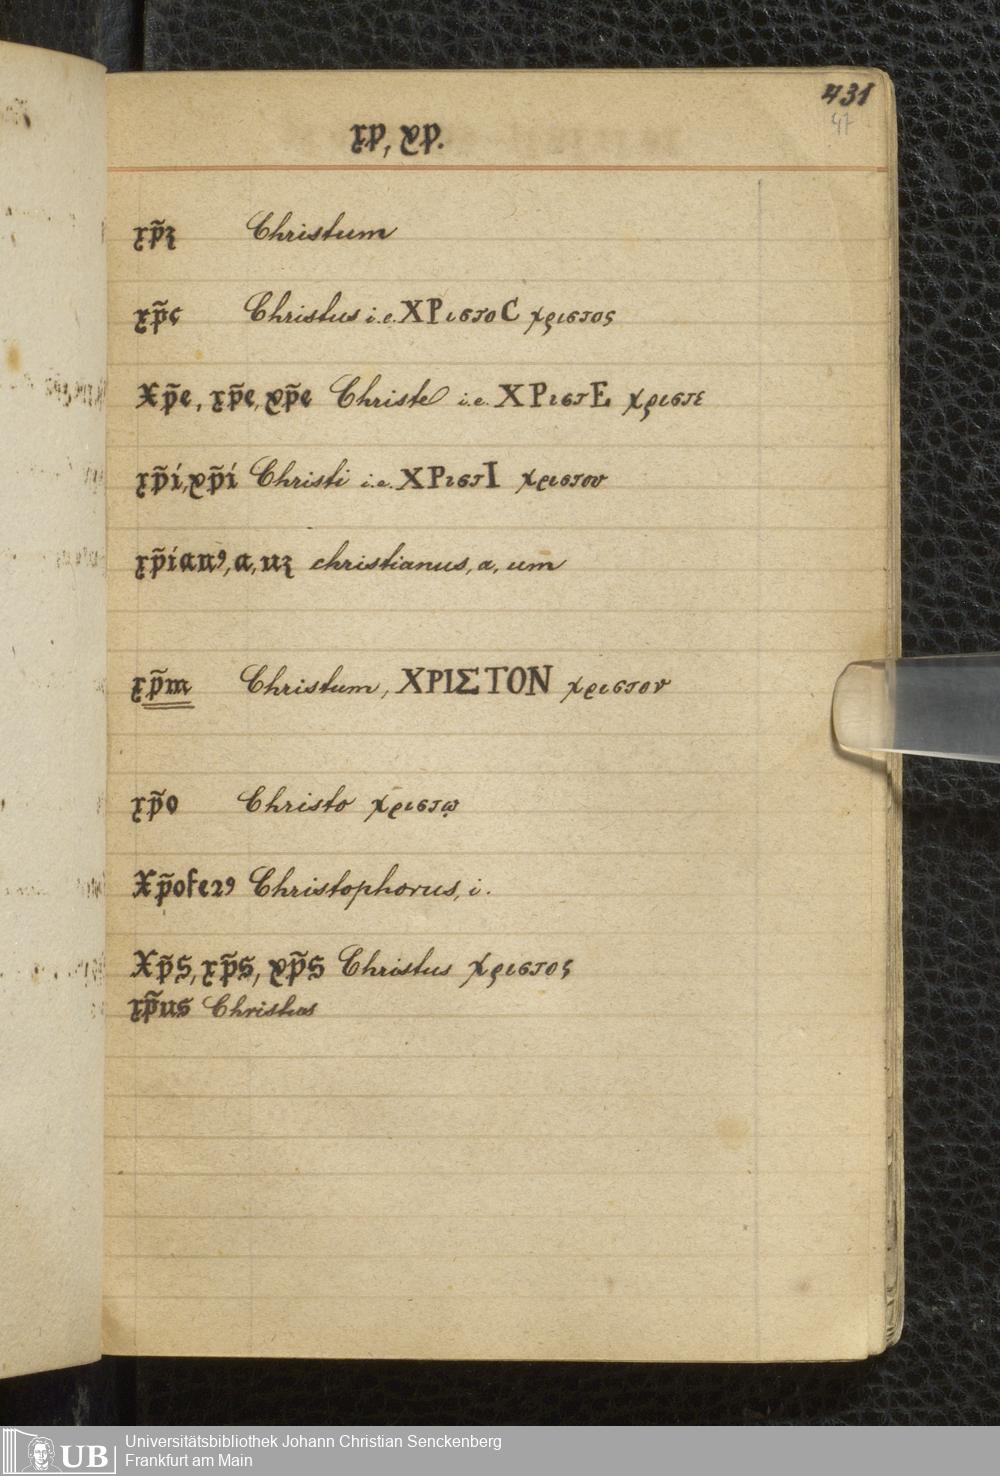 431
47
xp, xp.
xp̃ꝫ Christum
xp̃ς Christus i.e. XPιστοC χριστος
Xp̃e, xp̃e, xp̃e Christe i.e. XPιστE χριστε
xp̃i, xp̃i Christi i.e. XPιστI χριστου
xp̃ianꝰ, a, uꝫ christianus, a, um
xp̃m Christum, ΧΡΙΣΤΟΝ χριστον
xp̃o Christo χριστῳ
Xp̃ofeꝛꝰ Christophorus, i.
Xp̃s, xp̃s, xp̃s Christus χριστος
xp̃us Christus
UB
Universitätsbibliothek Johann Christian Senckenberg
Frankfurt am Main